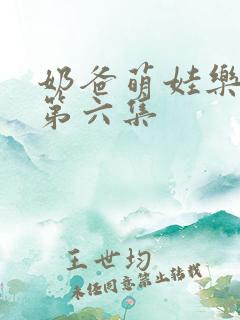 奶爸萌娃樂
第六集
王世均
未经同意禁止转载